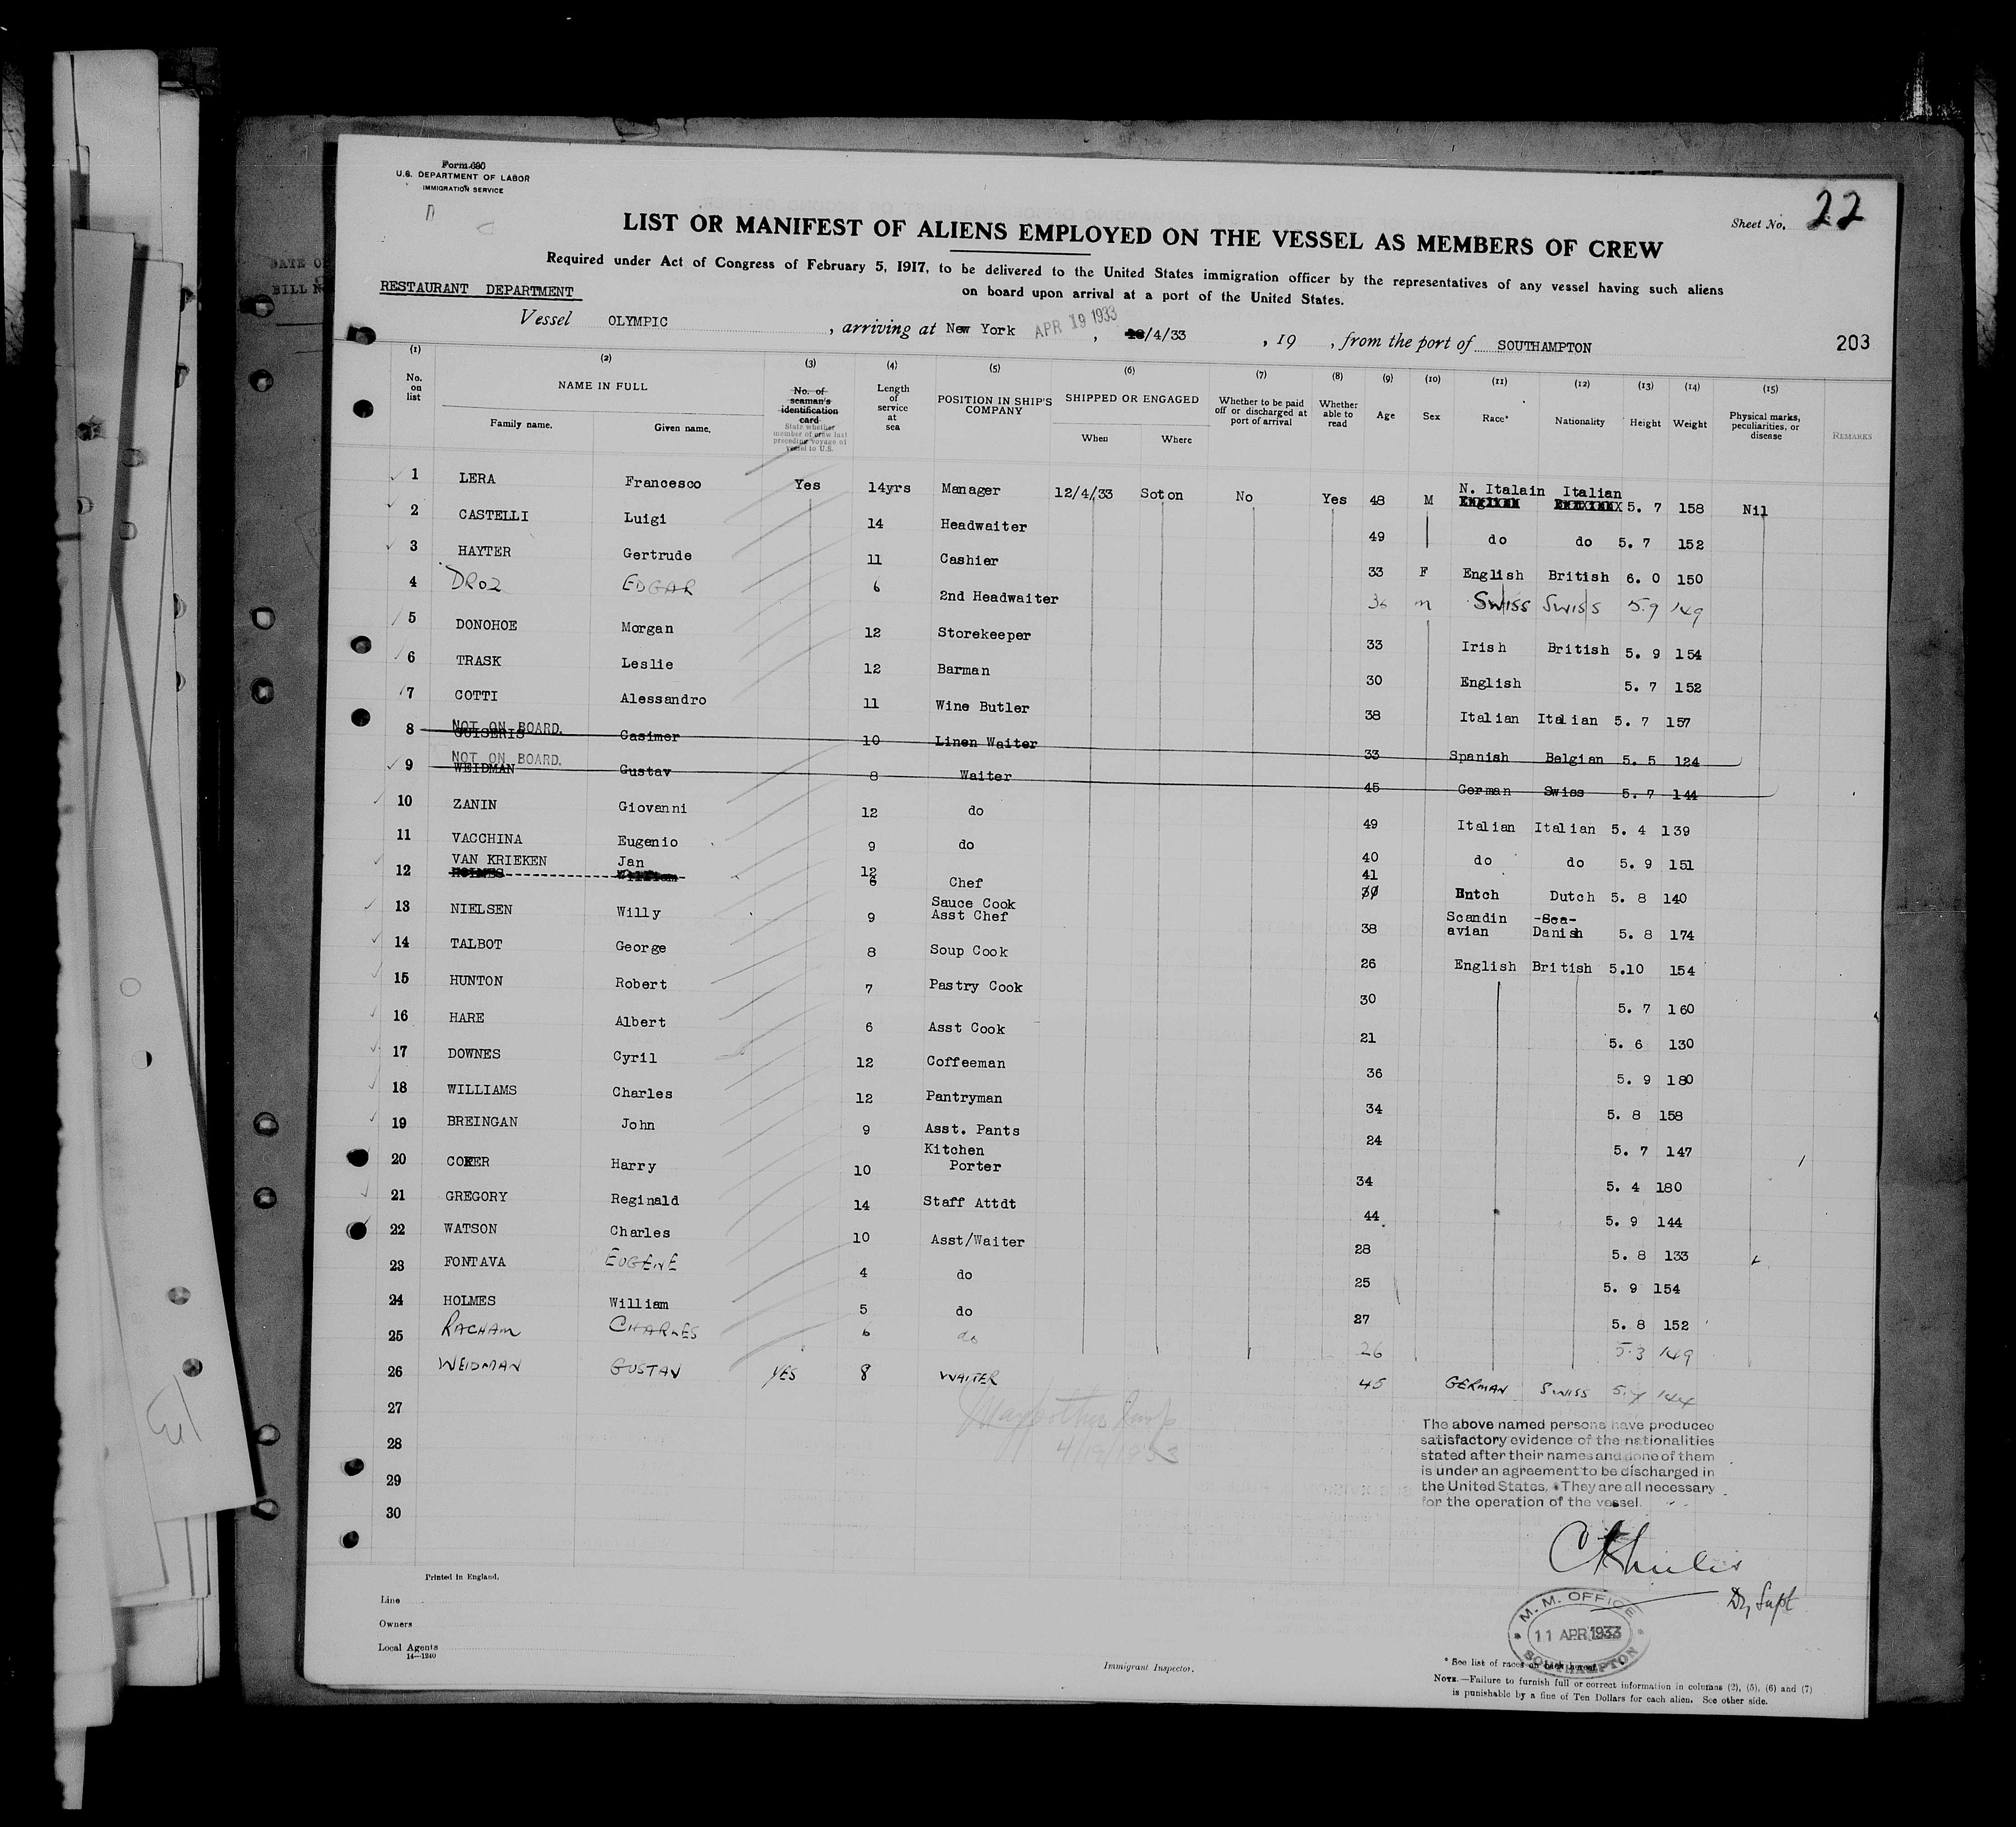 Form 680
U.S. DEPARTMENT OF LABOR
IMMIGRATION SERVICE
Sheet No. 22
LIST OR MANIFEST OF ALIENS EMPLOYED ON THE VESSEL AS MEMBERS OF CREW
Required under Act of Congress of February 5, 1917, to be delivered to the United States immigration officer by the representatives of any vessel having such aliens
on board upon arrival at a port of the United States.
RESTAURANT DEPARTMENT
Vessel OLYMPIC, arriving at New York APR 19 1933, /4/33, 19 , from the port of SOUTHAMPTON
203
DATE O
BILL N
(1) (2) (3) (4) (5) (6) (7) (8) (9) (10) (11) (12) (13) (14) (15)
No. on list NAME IN FULL Family name. Given name. No. of seaman's identification card State whether member of crew last preceding voyage of vessel to U.S. Length of service at sea POSITION IN SHIP'S COMPANY SHIPPED OR ENGAGED When Where Whether to be paid off or discharged at port of arrival Whether able to read Age Sex Race* Nationality Height Weight Physical marks, peculiarities, or disease REMARKS
1 LERA Francesco Yes 14yrs Manager 12/4/33 Soton No Yes 48 M N. Italain English Italian 5. 7 158 Nil
2 CASTELLI Luigi 14 Headwaiter 49 do do 5. 7 152
3 HAYTER Gertrude 11 Cashier 33 F English British 6. 0 150
4 DROZ EDGAR 6 2nd Headwaiter 36 m SWISS SWISS 5.9 149
5 DONOHOE Morgan 12 Storekeeper 33 Irish British 5. 9 154
6 TRASK Leslie 12 Barman 30 English 5. 7 152
7 COTTI Alessandro 11 Wine Butler 38 Italian Italian 5. 7 157
8 NOT ON BOARD. GUISERIS Casimer 10 Linen Waiter 33 Spanish Belgian 5. 5 124
9 NOT ON BOARD. WEIDMAN Gustav 8 Waiter 45 German Swiss 5. 7 144
10 ZANIN Giovanni 12 do 49 Italian Italian 5. 4 139
11 VACCHINA Eugenio 9 do 40 do do 5. 9 151
12 VAN KRIEKEN Jan HOLMES William 12 6 Chef 41 Dutch Dutch 5. 8 140
13 NIELSEN Willy 9 Sauce Cook Asst Chef 38 Scandin avian -Sca- Danish 5. 8 174
14 TALBOT George 8 Soup Cook 26 English British 5.10 154
15 HUNTON Robert 7 Pastry Cook 30 5. 7 160
16 HARE Albert 6 Asst Cook 21 5. 6 130
17 DOWNES Cyril 12 Coffeeman 36 5. 9 180
18 WILLIAMS Charles 12 Pantryman 34 5. 8 158
19 BREINGAN John 9 Asst. Pants 24 5. 7 147
20 COKER Harry 10 Kitchen Porter 34 5. 4 180
21 GREGORY Reginald 14 Staff Attdt 44 5. 9 144
22 WATSON Charles 10 Asst/Waiter 28 5. 8 133
23 FONTAVA EUGENE 4 do 25 5. 9 154
24 HOLMES William 5 do 27 5. 8 152
25 RACHAM CHARLES 6 do 26 5.3 149
26 WEIDMAN GUSTAV YES 8 WAITER 45 GERMAN SWISS 5.7 144
27
28 4/19/1933
29
30
The above named persons have produced
satisfactory evidence of the nationalities
stated after their names and none of them
is under an agreement to be discharged in
the United States. They are all necessary
for the operation of the vessel.
Dy Supt
M. M. OFFICE
11 APR 1933
SOUTHAMPTON
Printed in England.
Line
Owners
Local Agents
14—1240
Immigrant Inspector.
* See list of races on back hereof.
NOTE.—Failure to furnish full or correct information in columns (2), (5), (6) and (7)
is punishable by a fine of Ten Dollars for each alien. See other side.